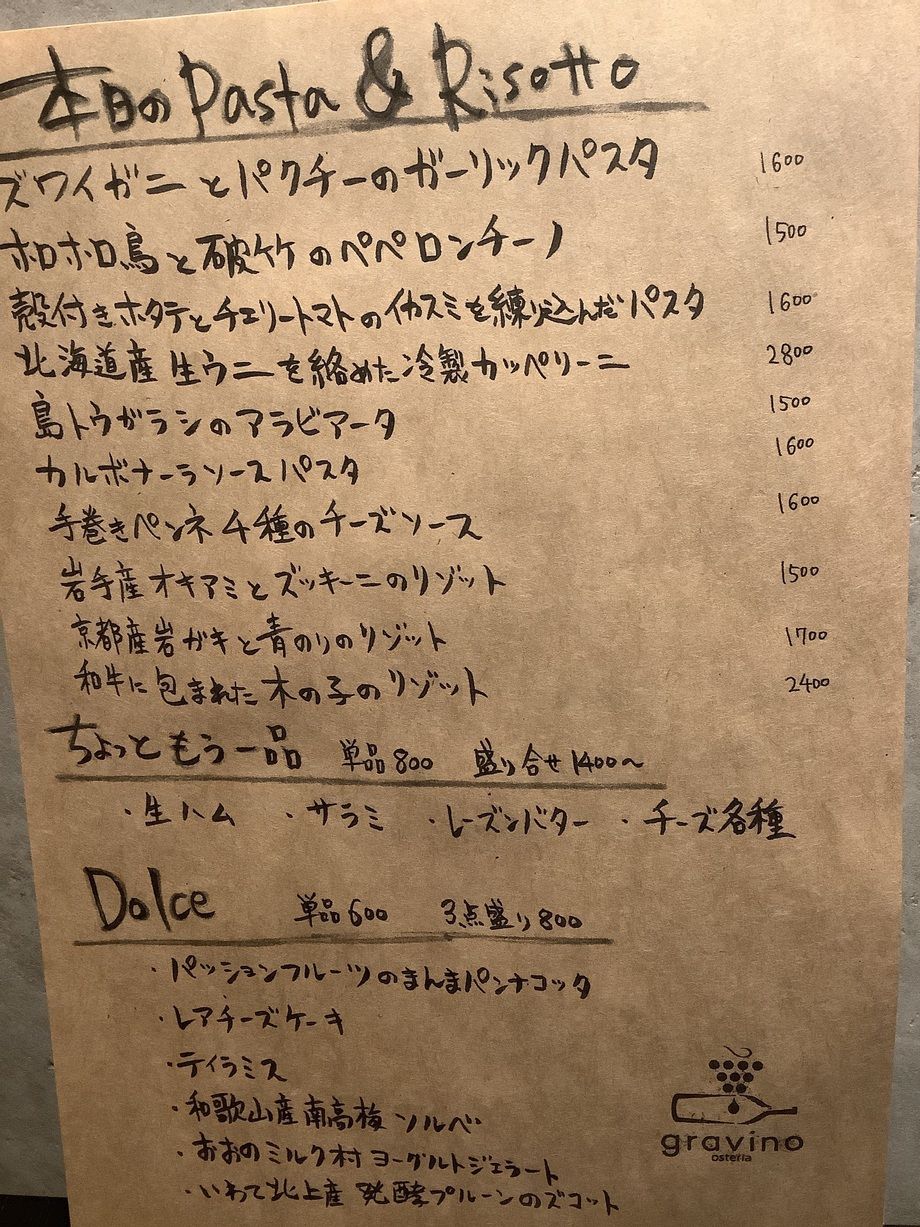 本日の Pasta & Risotto
ズワイガニとパクチーのガーリックパスタ 1600
ホロホロ鳥と破竹のペペロンチーノ 1500
殻付きホタテとチェリートマトのイカスミを練り込んだパスタ 1600
北海道産生ウニを絡めた冷製カッペリーニ 2800
島トウガラシのアラビアータ 1500
カルボナーラソースパスタ 1600
手巻きペンネ4種のチーズソース 1600
岩手産オキアミとズッキーニのリゾット 1500
京都産岩ガキと青のりのリゾット 1700
和牛に包まれた木の子のリゾット 2400
ちょっともう一品 単品800 盛り合せ1400〜
・生ハム ・サラミ ・レーズンバター ・チーズ各種
Dolce 単品600 3点盛り800
・パッションフルーツのまんまパンナコッタ
・レアチーズケーキ
・ティラミス
・和歌山産南高梅ソルベ
・おおのミルク村ヨーグルトジェラート
・いわて北上産発酵プルーンのズコット
gravino
osteria